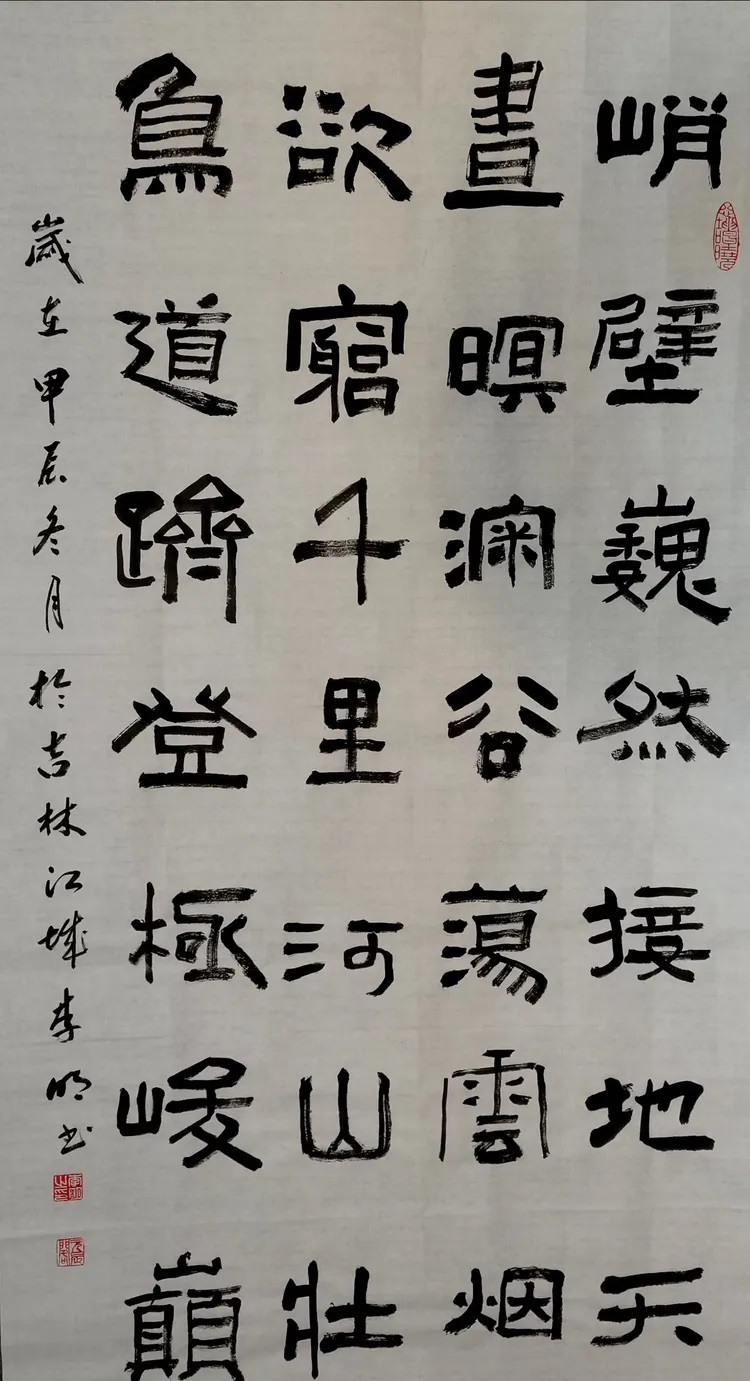 峭壁巍然接地天
晝暝深谷蕩雲烟
欲窮千里河山壯
鳥道躋登極峻巔
歲在甲辰冬月於吉林江城李明书